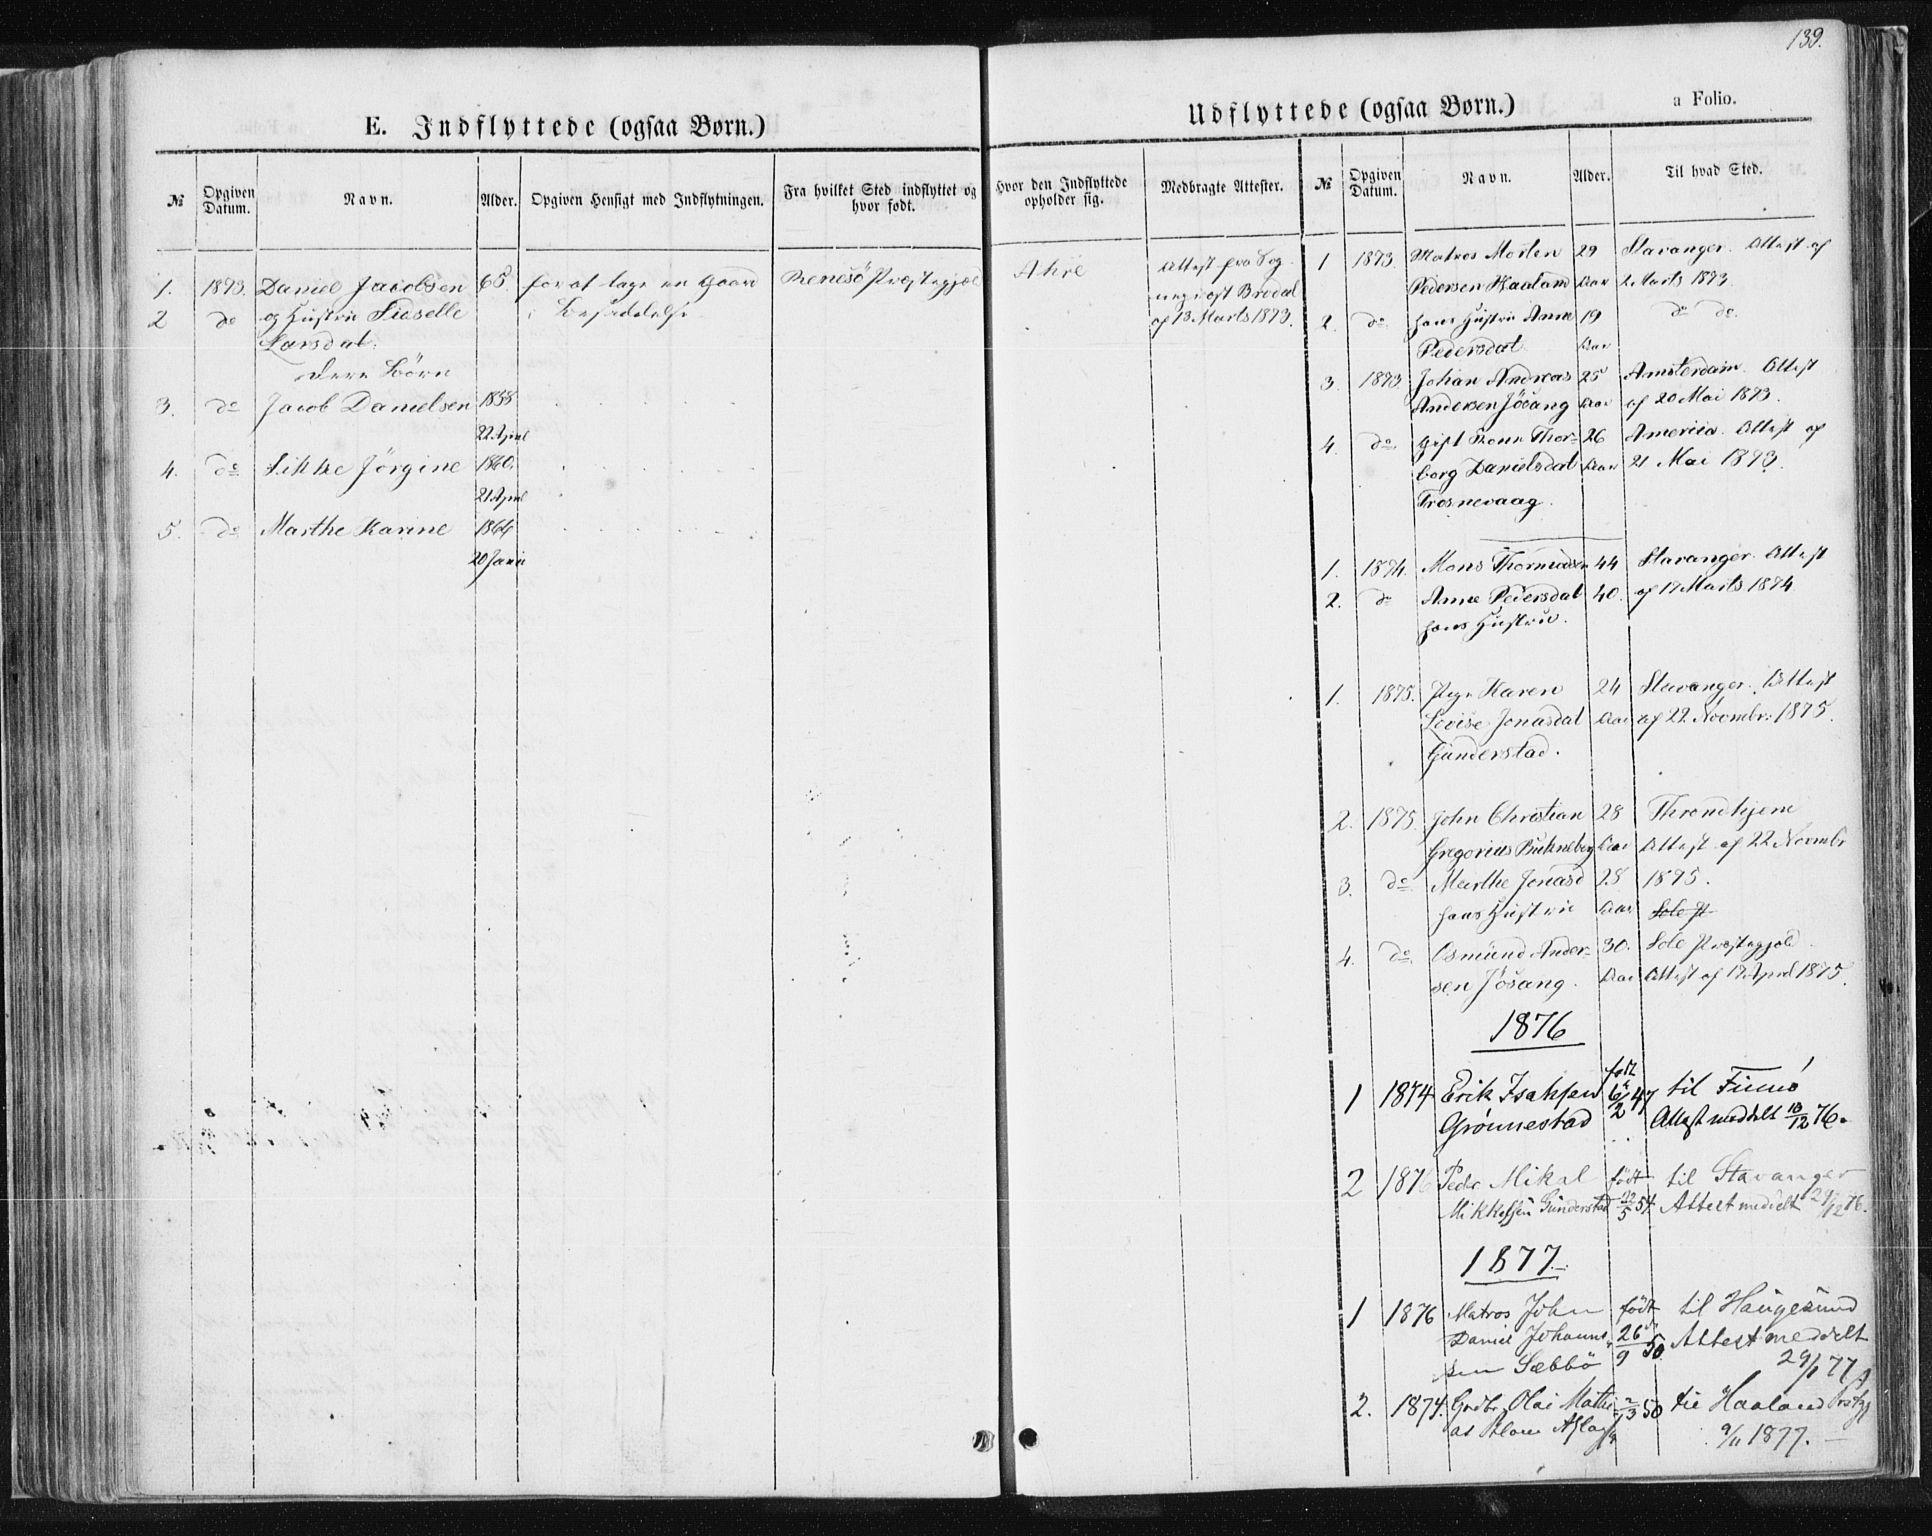 139.
E. Indflyttede (ogsaa Børn.)
№ Opgiven Datum. Navn. Alder. Opgiven Hensigt med Indflytningen. Fra hvilket Sted indflyttet og hvor født. Hvor den Indflyttede opholder sig. Medbragte Attester.
1. 1873. Daniel Jacobsen 65. for at tage en Gaard Renesö Præstegjæld Ahre Attest fra Sog-
2 do og Hustru Larsdat. i Besiddelse neprest Bredal
af 13 Marts 1873.
Deres Börn
3. do Jacob Danielsen 1858
22 April
4. do Sikke Jörgine 1860.
21 April
5. do Marthe Karine 1864
20 Janu
Udflyttede (ogsaa Børn.)
a Folio.
№ Opgiven Datum. Navn. Alder. Til hvad Sted.
1 1873. Matros Morten 29 Stavanger. Attest af
Pedersen Haaland Aar 2 Marts 1873.
2. do hans Hustru Anne 19 do do.
Pedersdat Aar
3. 1873 Johan Andreas 25 Amsterdam. Attest
Andersen Jösang Aar af 20 Mai 1873.
4. do Gift Kone Thor- 26 America. Attest af
borg Danielsdat Aar 21 Mai 1873.
Trosnevaag.
1. 1874. Mons Thormodsen 44 Stavanger. Attest
2. do Anne Pedersdat 40. af 17 Marts 1874
hans Hustru.
1. 1875. Pige Karen 24 Stavanger. Attest
Lovise Jonasdat Aar af 22 Novmbr: 1875.
Gunderstad.
2. 1875. John Christian 28 Throndhjem
Gregorius Aar Attest af 22 Novmbr
3. do Marthe Jonasd 28 1875.
hans Hustru Aar
4. do. Osmund Ander- 30. Sole Præstegjæld
sen Jösang. Aar Attest af 17 April 1875.
1876
1 1874 Erik Isaksen født 6/2 47 til Finnö
Grönnestad Attest meddelt 18/12 76.
2 1876 Peder Mikal födt til Stavanger
Mikkelsen Gunderstad 22/5 54. Attest meddelt 29/12 76.
1877.
1 1876 Matros John födt til Haugesund
Daniel Johanne- 26/9 50. Attest meddelt
sen Sæbbö 29/1 77
2. 1874. Gndbr. Olai Mathi- 2/3 50 til Haaland Prstgj
as 9/11 1877.